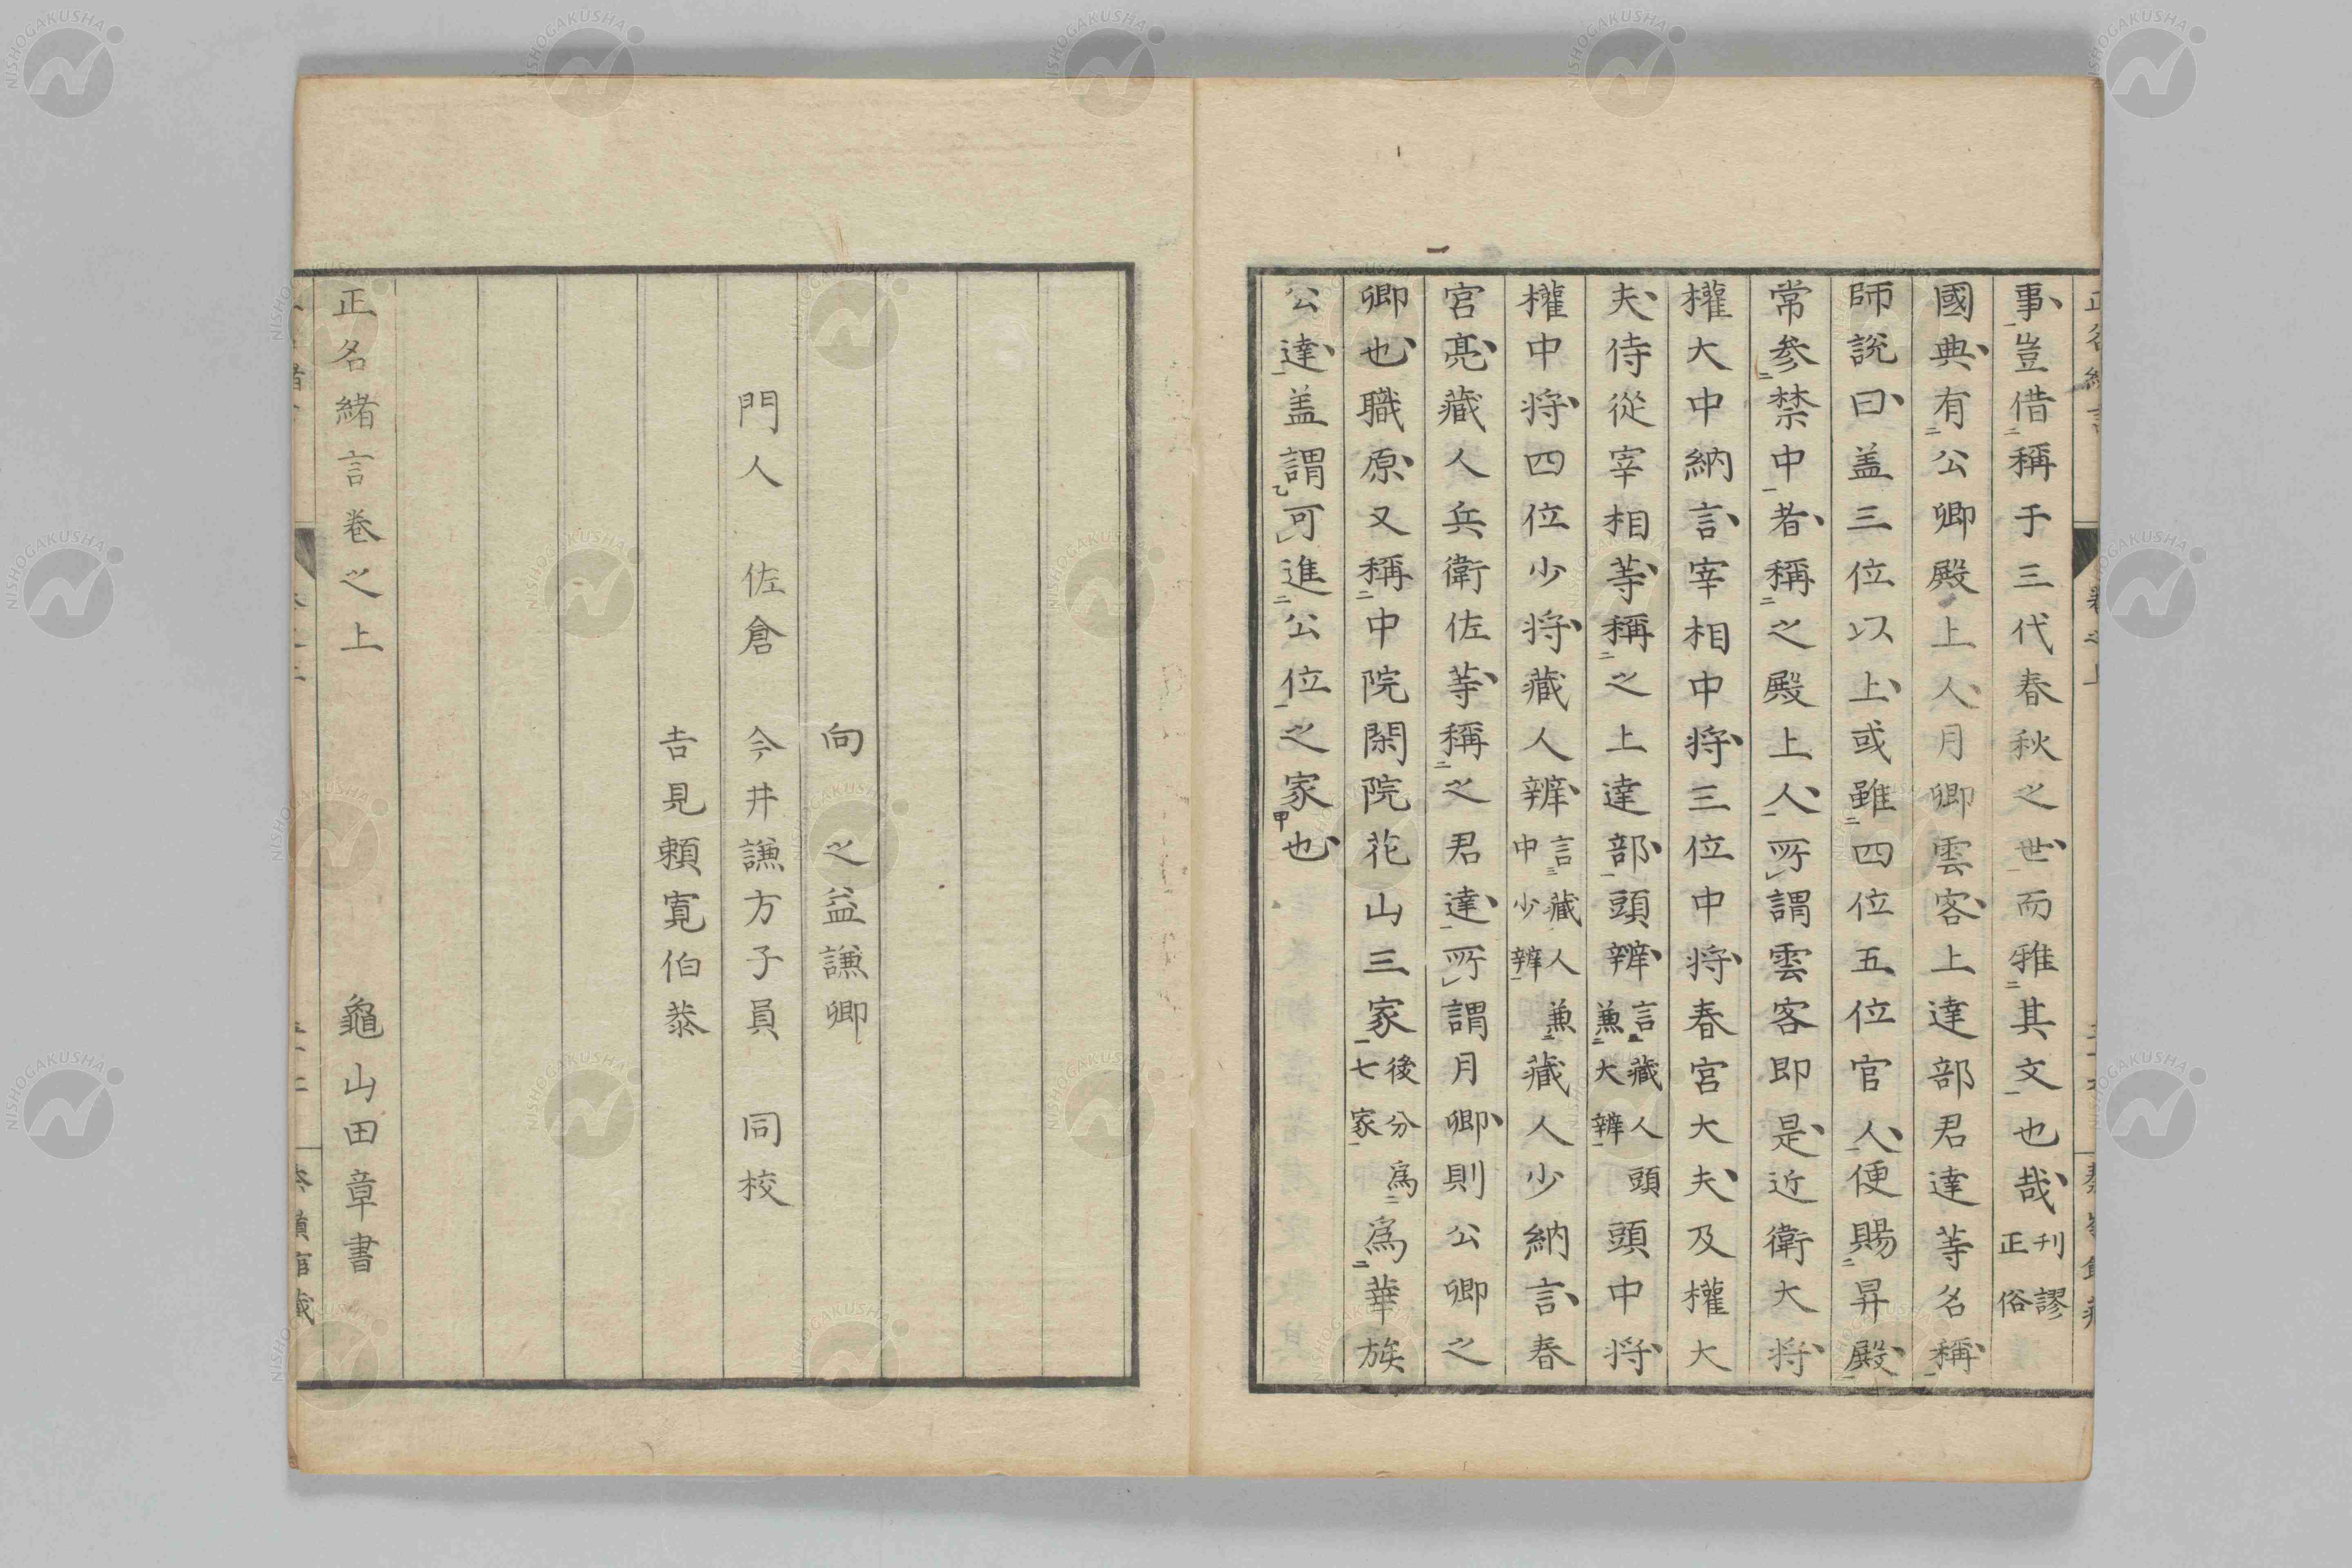 事、豈借稱于三代春秋之世、而雅其文也哉、刊謬正俗
國典、有公卿殿上人、月卿雲客、上達部君達等名稱、
師說曰、盖三位以上、或雖四位五位官人、便賜昇殿、
常参禁中者、稱之殿上人、所謂雲客即是、近衛大将、
權大中納言、宰相中将、三位中将、春宮大夫、及權大
夫、侍從宰相等、稱之上達部、頭辨、言藏人頭兼大辨頭中将、
權中将、四位少将、藏人辨、言藏人兼中少辨藏人少納言、春
宮亮、藏人兵衛佐等、稱之君達、所謂月卿、則公卿之
卿也、職原、又稱中院閑院花山三家後分爲七家爲華族
公達、盖謂可進公位之家也、
向之益謙卿
門人 佐倉 今井謙方子員 同校
吉見頼寛伯恭
正名緒言巻之上 龜山田章書